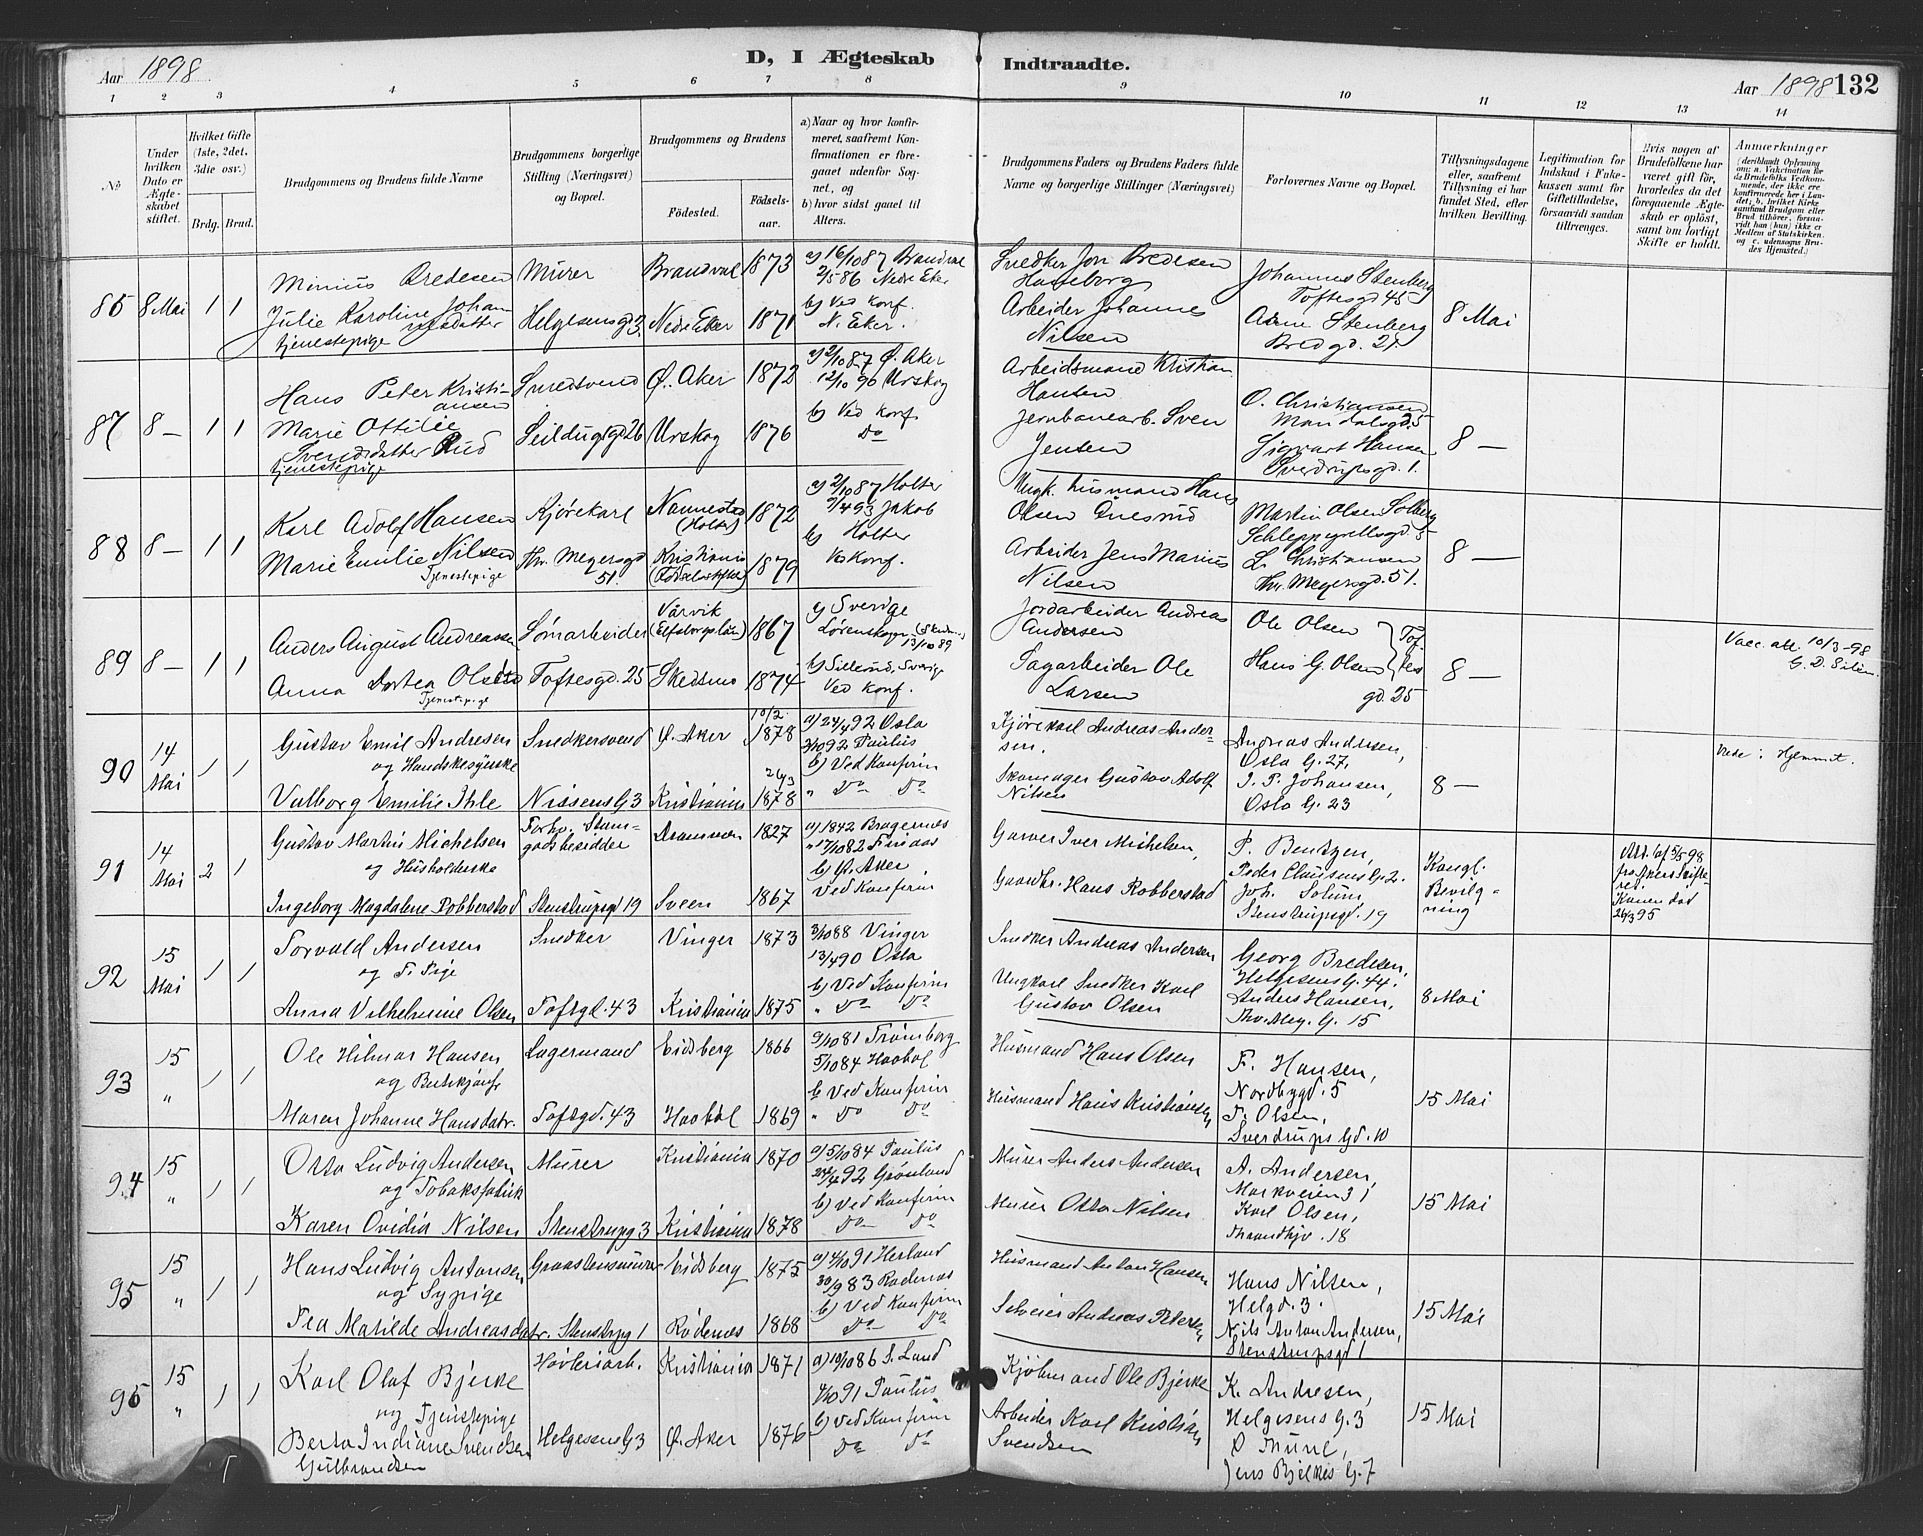 D, I Ægteskab Indtraadte.
Aar 1898 Aar 1898 132
1 2 3 4 5 6 7 8 9 10 11 12 13 14
No
Under hvilken Dato er Ægteskabet stiftet.
Hvilket Gifte (1ste, 2det, 3die osv.)
Brdg. Brud.
Brudgommens og Brudens fulde Navne
Brudgommens borgerlige Stilling (Næringsvei) og Bopæl.
Brudgommens og Brudens
Fødested. Fødselsaar.
a) Naar og hvor konfirmeret, saafremt Konfirmationen er foregaaet udenfor Sognet, og
b) hvor sidst gaaet til Alters.
Brudgommens Faders og Brudens Faders fulde Navne og borgerlige Stillinger (Næringsvei)
Forlovernes Navne og Bopæl.
Tillysningsdagene eller, saafremt Tillysning ei har fundet Sted, efter hvilken Bevilling.
Legitimation for Indskud i Enkekassen samt for Giftetilladelse, forsaavidt saadan tiltrænges.
Hvis nogen af Brudefolkene har været gift før, hvorledes da det foregaaende Ægteskab er opløst, samt om lovligt Skifte er holdt.
Anmærkninger
86 8 Mai 1 1
Bredesen Murer Brandval 1873
a) 16/10 87 Brandval
2/5 86 Nedre Eker
Snedker Jon Bredesen
Johannes Stenberg
Toftesgd 45
8 Mai
Julie Karoline Johannesdatter
tjenestepige
Helgesensgd 3. Nedre Eker 1871
b) Ved Konf.
N. Eker.
Arbeider Johannes
Nilsen
Stenberg
Bredgd. 21.
87 8 — 1 1
Hans Peter Kristiansen
Smedsvend Ø. Aker 1872
a) 2/10 87 Ø. Aker
12/10 90 Urskog
Arbeidsmand Kristian
Hansen
O. Christiansen
Mandalsgd. 5
8 —
Marie Ottilie
Svendsdatter Rud
tjenestepige
Seildugsgd 26 Urskog 1876
b) Ved Konf.
Do
Jernbanearb. Sven
Jensen
Sigvart Hansen
Sverdrupsgd. 1.
88 8 — 1 1
Karl Adolf Hansen Kjørekarl Nannestad
(Holter) 1872
a) 2/10 87 Holter
9/4 93 Jakob
Ungk. husmand Hans
Olsen
Martin Olsen Solberg
Schleppegrellsgd. 5
8 —
Marie Emilie Nilsen
Tjenestepige
Thv. Meyersgd
51.
Kristiania
(Fødselsstiftel) 1879
b) Holter
Ved Konf.
Arbeider Jens Marius
Nilsen
L. Christiansen
Thv. Meyersgd. 51.
89 8 — 1 1
Anders August Andreassen Tømarbeider
Vårvik
(Elfsborgslän) 1867
a) Sverige
Lørenskogen
13/10 89
Jordarbeider Andreas
Andersen
Ole Olsen
8 —
Vacc. att. 10/3-98
Anna Dortea Olsen
Tjenestepige
Toftesgd. 25 Skedsmo 1874
b) Sillerud, Sverige
Ved Konf.
Sagarbeider Ole
Larsen
Hans G. Olsen
Toftesgd 25
90 14 Mai 1 1
Gustav Emil Andresen
og Handskesyerske
Snedkersvend Ø. Aker 10/2 1878
a) 24/4 92 Oslo
2/10 92 Paulus
Kjørekarl Andreas Andersen.
Andreas Andresen,
Oslo G. 27,
8 —
Viede i Hjemmet.
Valborg Emilie Ihle Nissens G 3 Kristiania 26/3 1878
b) Ved Konfirm
" Do Do
Skomager Gustav Adolf
Nilsen
I. P. Johansen,
Oslo G. 23
91 14 Mai 2 1
Gustav Martin Michelsen
og Husholderske
Forhv. Stamgodsbesidder
Drammen 1827
a) 1842 Bragernes
" 17/10 82 Finaas
Garver Iver Michelsen,
P. Bentzen,
Peder Clausens G. 2.
Kongl.
Bevilgning
Att. af 5/5 98
fra Akers Skifteret.
Konen død
26/3 95
Ingeborg Magdalene Robberstad Stenstrupsgd 19 Sveen 1867
b) Ø. Aker
Ved Konfirm
Gaardbr. Hans Robberstad
Joh. Solum,
Stenstrupsgd. 19
92 15 Mai 1 1
Torvald Andersen
og F. Pige
Snedker Vinger 1873
3/10 88 Vinger
13/4 90 Oslo
Snedker Andreas Andersen
Georg Bredesen,
Helgesens G. 44.
8 Mai
Anna Vilhelmine Olsen Toftsgd. 43 Kristiania 1875
b) Ved Konfirm
" Do Do
Ungkarl Snedker Karl
Gustav Olsen
Anders Hansen,
Thv. Mey. G. 15
93 15 " 1 1
Ole Hilmar Hansen
Lagermand Eidsberg 1866
9/10 81 Trømborg
5/10 84 Haabøl
Husmand Hans Olsen
F. Hansen,
Nordbygd. 5
15 Mai
Maren Johanne Hansdatr. Toftsgd. 43 Haabøl 1869
b) Ved Konfirm
" Do Do
Husmand Hans Kristiansen
T. Olsen,
Sverdrups Gd. 10
94 15 " 1 1
Otto Ludvig Andersen
og Tobaksfabrik
Murer Kristiania 1870
a) 5/10 84 Paulus
24/4 92 Grønland
Murer Anders Andersen
A. Andersen,
Markveien 31
15 Mai
Karen Ovidia Nilsen Stenstrupg 3 Kristiania 1878
b) Ved Konfirm
Do Do
Murer Otto Nilsen
Karl Olsen,
Throndhjv. 18
95 15 " 1 1
Hans Ludvig Antonsen
og Sypige
Graastensmurer Eidsberg 1875
a) 4/10 91 Herland
30/9 83 Rødenæs
Husmand Anton Hansen
Hans Nilsen,
Helgd. 3.
15 Mai
Tea Matilde Andreasdatr. Stenstrpg 1 Rødenæs 1868
b) Ved Konfirm
Do Do
Selveier Andreas Petersen
Nils Anton Andersen,
Stenstrupsgd 1
96 15 " 1 1
Karl Olaf Bjerke
og Tjenstepige
Høvleriarb. Kristiania 1871
a) 10/10 86 S. Land
4/10 91 Paulus
Kjøbmand Ole Bjerke
K. Andresen,
Helgesens G. 3
15 Mai
Berta Indiane Svendsen
Gulbrandsen
Helgesens G 3 Ø. Aker 1876
b) Ved Konfirm
Do Do
Arbeider Karl Kristian
Svendsen
Jens Bjelkes G. 7